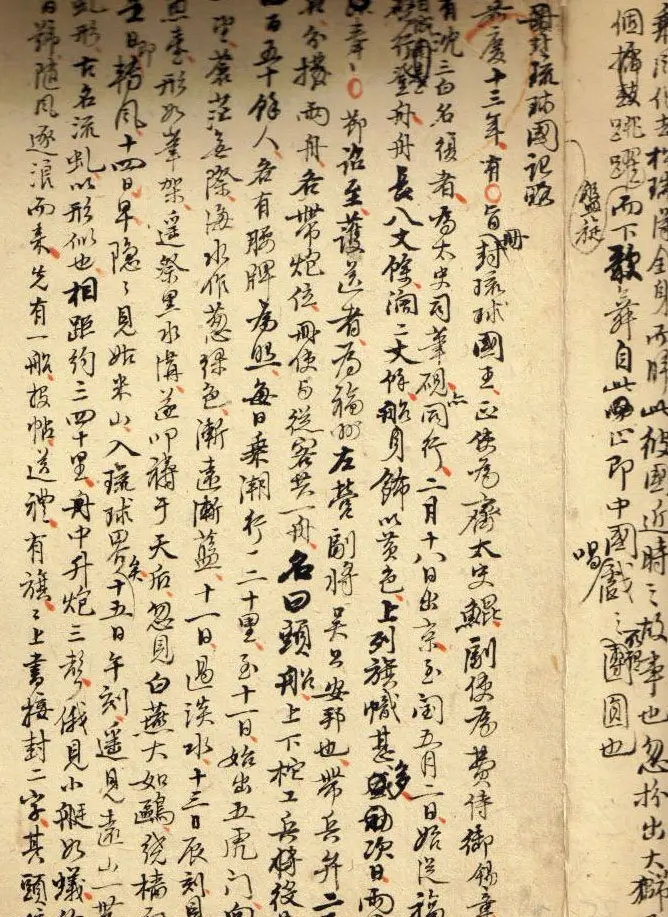 於球 全身而歸此彼國近時之故事也忽扮出大獅
個擂鼓跳躍而下歌舞自此 止即中國戲之團圓也
盤旋
唱
冊封琉球國記略
嘉慶十三年有旨冊封琉球國王正使為齊太史鯤副使為費侍御錫章
有沈三白名復者為太史司筆硯同行二月十八日出京至閩五月二日始從福
啟行登舟舟長八丈餘濶二丈餘船身飾以黃色上列旗幟甚多次日兩
節詔至護送者為福州左營副將吳公安邦也帶兵弁二
分撥兩舟各帶炮位冊使與從客共一舟名曰頭船上下柁工兵將役
百五十餘人各有腰牌為照每日乘潮行一二十里至十一日始出五虎門向
望蒼茫無際海水作葱綠色漸遠漸藍十一日過淡水十三日辰刻見
魚臺形如筆架遙祭黑水溝遂叩禱于天后忽見白燕大如鷗繞檣而
日即轉風十四日早隱〻見姑米山入琉球界矣十五日午刻遙見遠山一帶
虬形古名流虬以形似也相距約三四十里舟中升炮三聲俄見小艇如蟻
號隨風逐浪而來先有一船投帖送禮有旗〻上書接封二字其頭